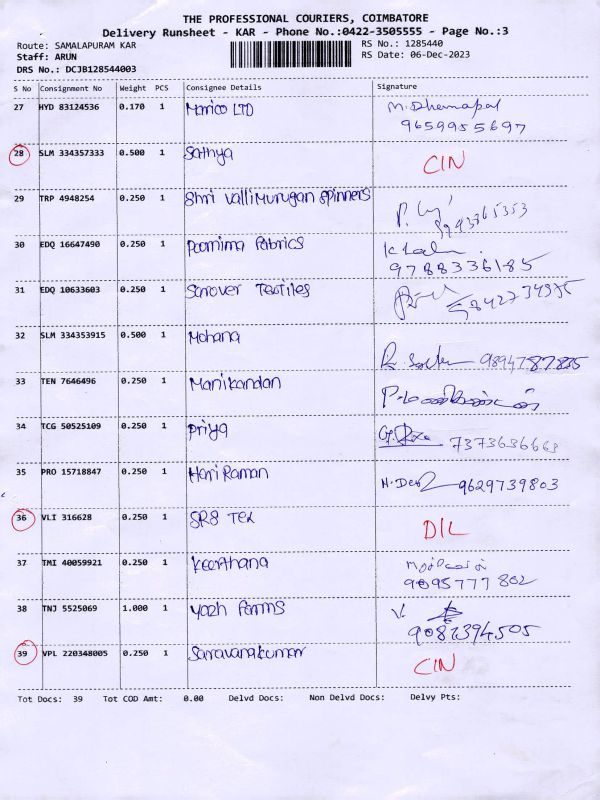 THE PROFESSIONAL COURIERS, COIMBATORE
Delivery Runsheet - KAR - Phone No.:0422-3505555 - Page No.:3
Route: SAMALAPURAM KAR RS No.: 1285440
Staff: ARUN RS Date: 06-Dec-2023
DRS No.: DCJB128544003
S No Consignment No Weight PCS Consignee Details Signature
27 HYD 83124536 0.170 1 Marico LTD M. Dhanapal
9659955697
28 SLM 334357333 0.500 1 Sathya CIN
29 TRP 4948254 0.250 1 Shri Valli Murugan Spinners
30 EDQ 16647490 0.250 1 Poornima Fabrics
9788336185
31 EDQ 10633603 0.250 1 Sarover Textiles
32 SLM 334353915 0.500 1 Mohana
33 TEN 7646496 0.250 1 Manikandan
34 TCG 50525109 0.250 1 Priya 7373636663
35 PRO 15718847 0.250 1 Hari Raman 9629739803
36 VLI 316628 0.250 1 SR8 Tex DIL
37 TMI 40059921 0.250 1 Keerthana
9095777802
38 TNJ 5525069 1.000 1 Yazh Farms V.
9082394505
39 VPL 220348005 0.250 1 Saravanakumar CIN
Tot Docs: 39 Tot COD Amt: 0.00 Delvd Docs: Non Delvd Docs: Delvy Pts: